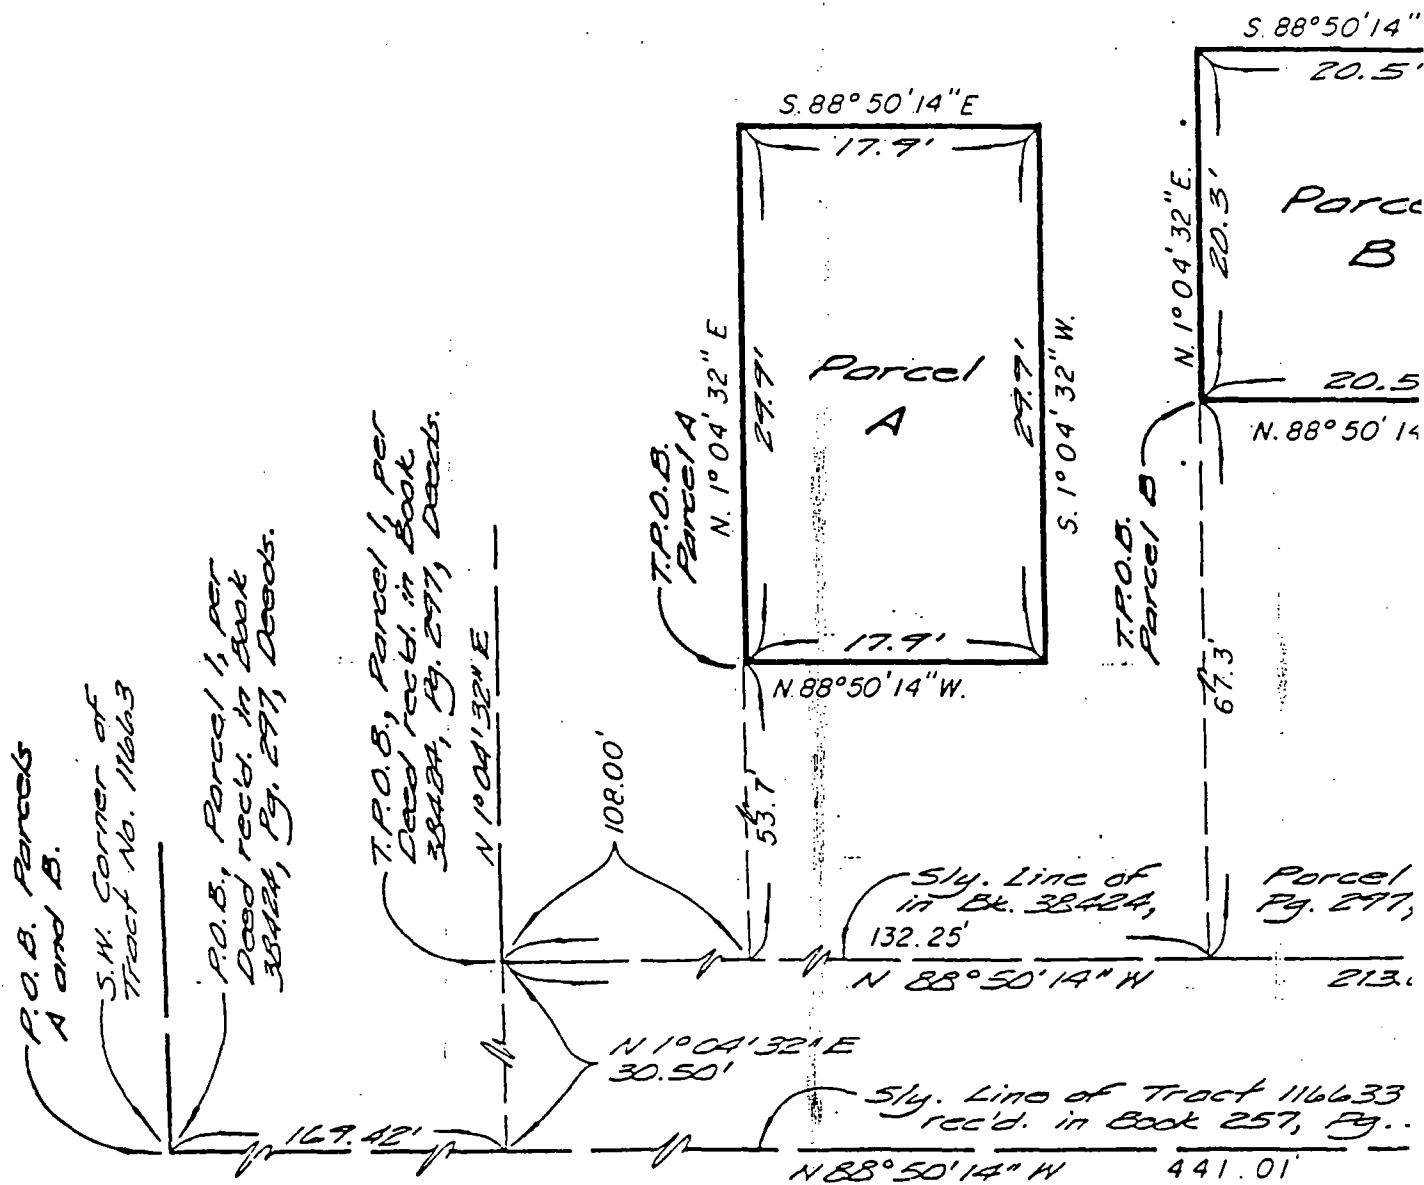 S. 88°50'14"
20.5'
N. 1°04'32" E.
20.3'
Parc
B
20.5
N. 88°50'14
T.P.O.B.
Parcel B
67.3'
S. 88°50'14" E
17.9'
N. 1°04'32" E
29.9'
Parcel
A
29.9'
S. 1°04'32" W.
17.9'
N. 88°50'14" W.
T.P.O.B.
Parcel A
53.7'
T.P.O.B., Parcel 1, per
Deed rec'd. in Book
38424, Pg. 297, Deeds.
N 1°04'32" E
108.00'
P.O.B., Parcel 1, per
Deed rec'd. in Book
38424, Pg. 297, Deeds.
S.W. Corner of
Tract No. 11663
P.O.B. Parcels
A and B.
Sly. Line of Parcel
in Bk. 38424, Pg. 297,
132.25'
N 88°50'14" W
213.
N 1°04'32" E
30.50'
Sly. Line of Tract 116633
rec'd. in Book 257, Pg.
169.42'
N 88°50'14" W
441.01'